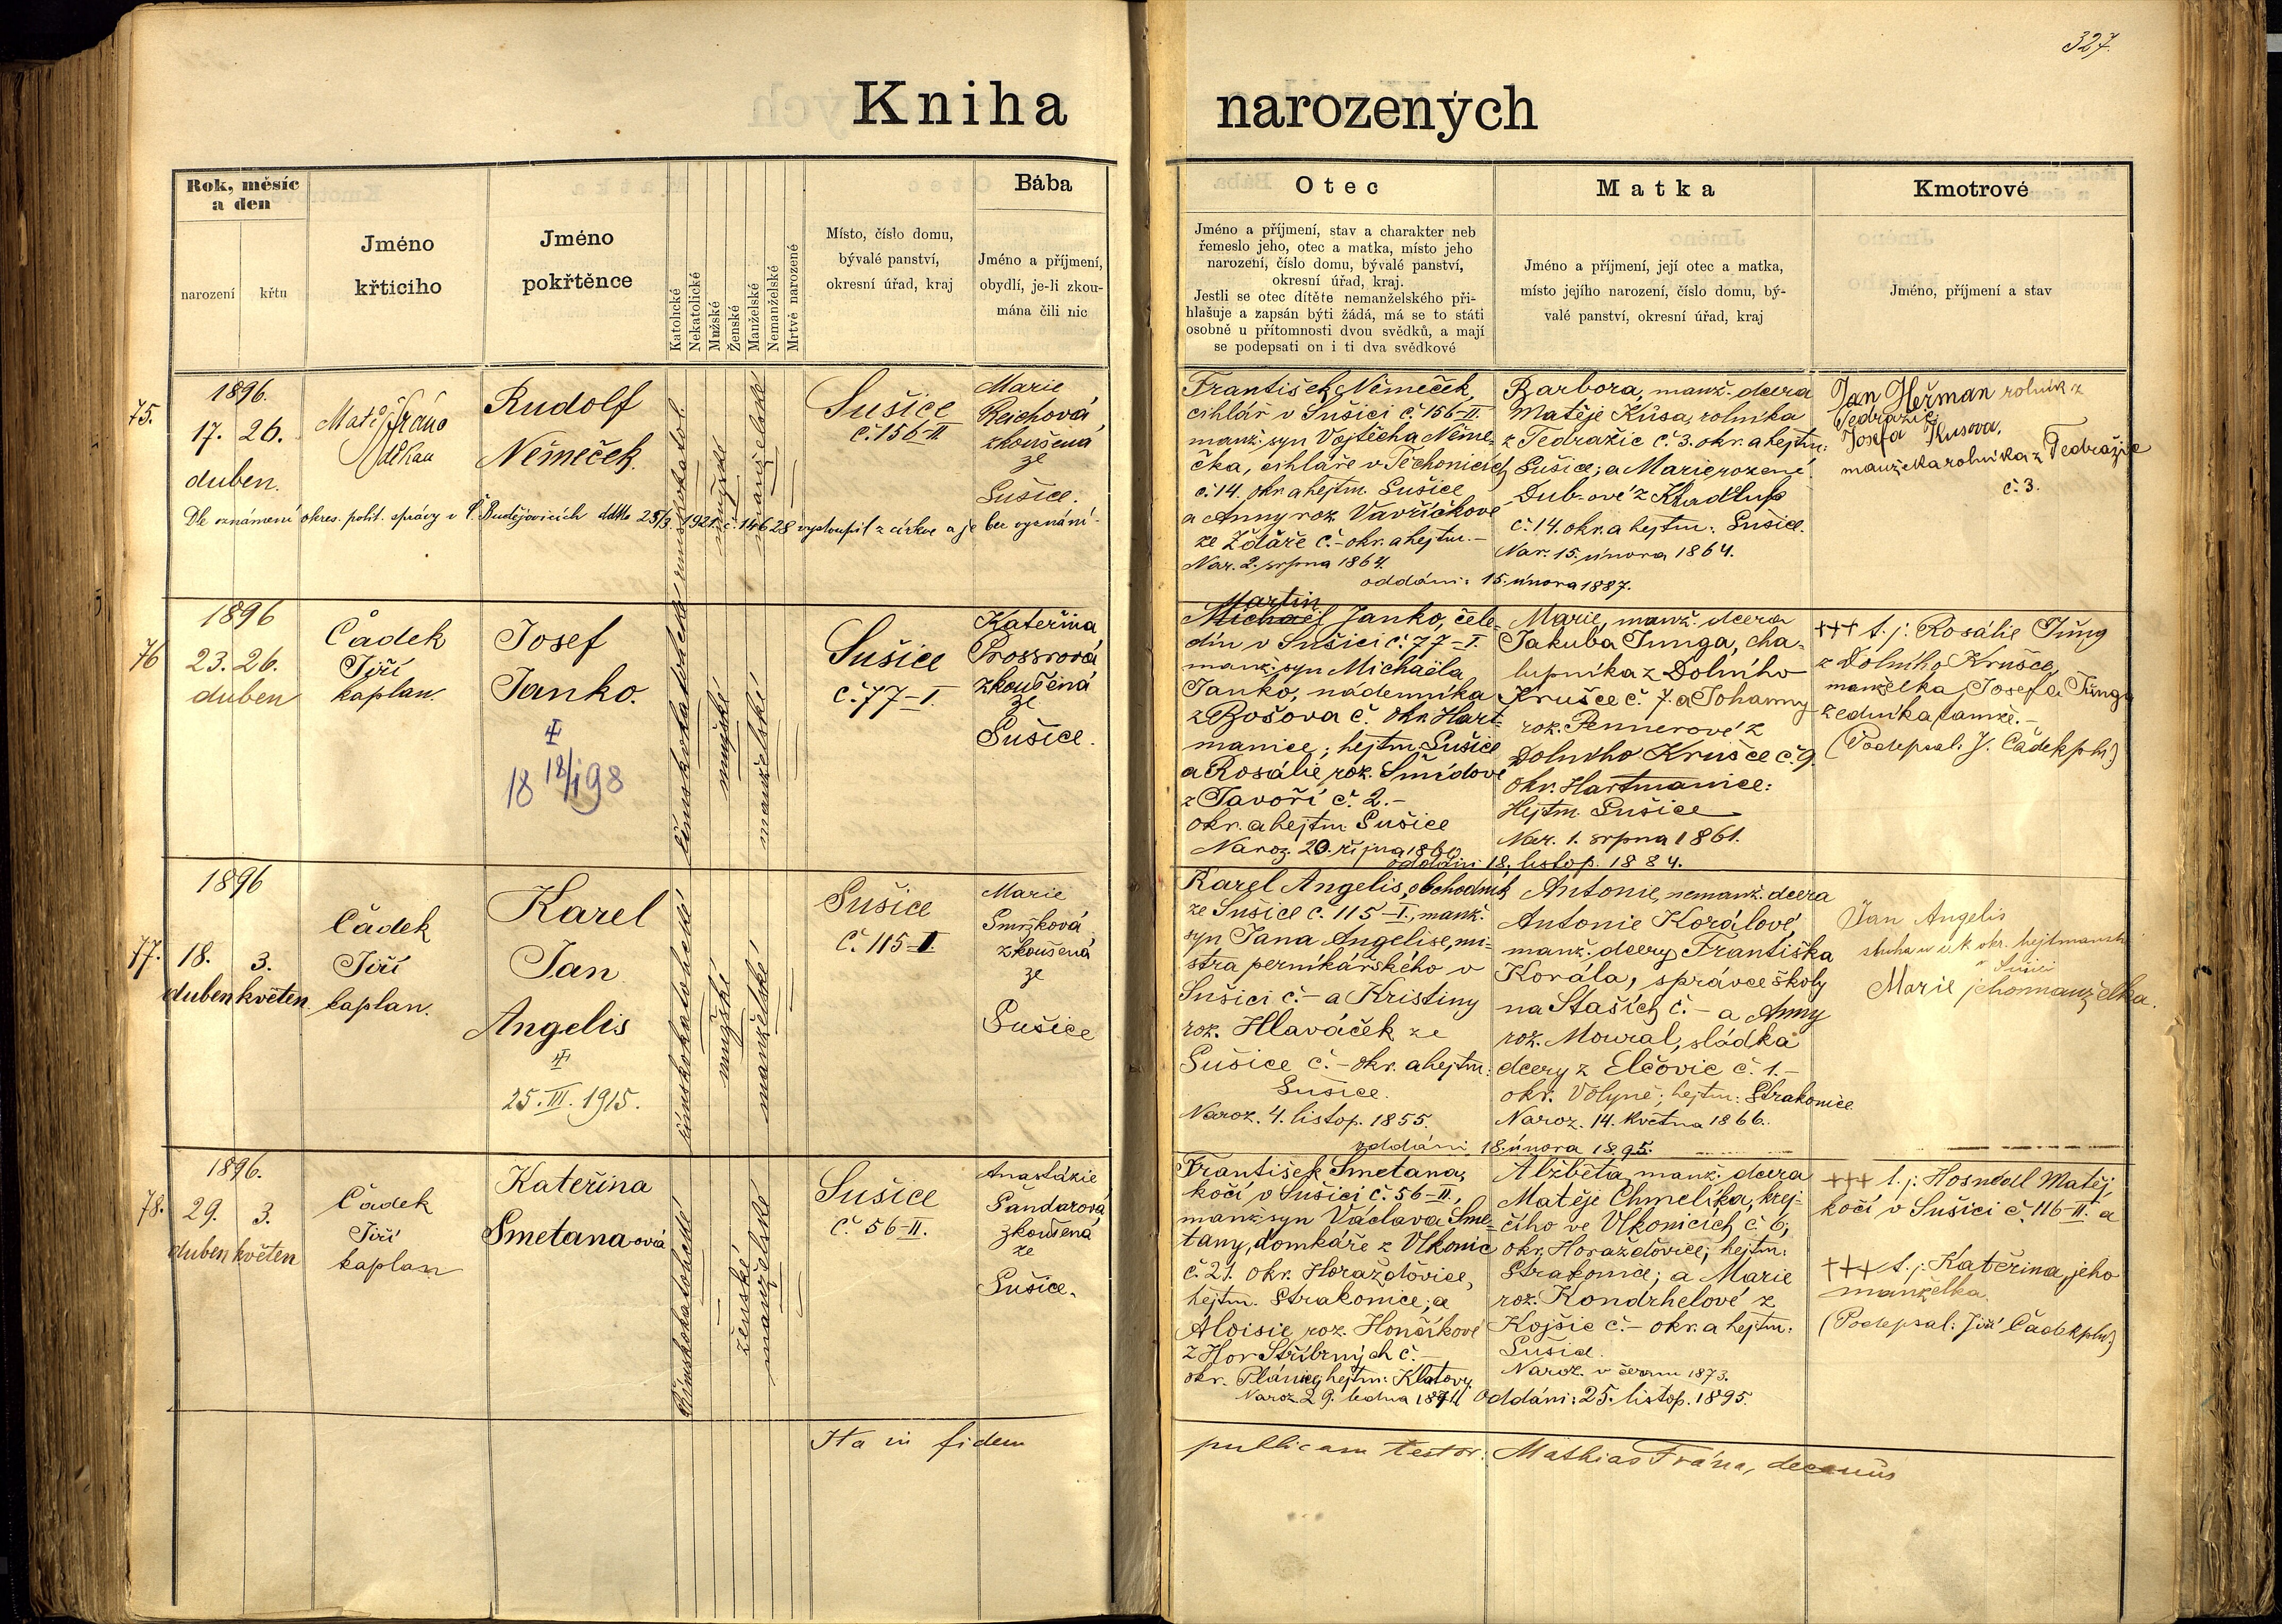 327.
Kniha narozených
Rok, měsíc a den
narození
křtu
Jméno křticího
Jméno pokřtěnce
Katolické
Nekatolické
Mužské
Ženské
Manželské
Nemanželské
Mrtvě narozené
Místo, číslo domu,
bývalé panství,
okresní úřad, kraj
Bába
Jméno a příjmení,
obydlí, je-li zkou-
mána čili nic
Otec
Jméno a příjmení, stav a charakter neb
řemeslo jeho, otec a matka, místo jeho
narození, číslo domu, bývalé panství,
okresní úřad, kraj.
Jestli se otec dítěte nemanželského při-
hlašuje a zapsán býti žádá, má se to státi
osobně u přítomnosti dvou svědků, a mají
se podepsati on i ti dva svědkové
Matka
Jméno a příjmení, její otec a matka,
místo jejího narození, číslo domu, bý-
valé panství, okresní úřad, kraj
Kmotrové
Jméno, příjmení a stav
75.
1896.
17. 26.
duben.
Matěj Frána
děkan
Rudolf
Němeček.
mužské
manželské
Sušice
č. 156-II
Marie
Reichová
zkoušená
ze
Sušice.
Dle oznámení okres. polit. správy v Č. Budějovicích ddto 25/3 1921 č. 14628 vystoupil z církve a je bez vyznání.
František Němeček,
cihlář v Sušici č. 156-II.
manž. syn Vojtěcha Něme-
čka, cihláře v Těchonicích
č. 14. okr. a hejtm. Sušice
a Anny roz. Vavříčkové
ze Ždáře č. - okr. a hejtm. -
Nar. 2. srpna 1864.
Barbora, manž. dcera
Matěje Kůsa, rolníka
z Tedražic č. 3. okr. a hejtm:
Sušice; a Marie rozené
Dub-ové z Kladrub
č. 14. okr. a hejtm: Sušice.
Nar. 15. února 1864.
oddáni: 15. února 1887.
Jan Heřman rolník z
Tedražic
Josefa Kusova,
manželka rolníka z Tedražic
č. 3.
76
1896
23. 26.
duben
Čádek
Jiří
kaplan.
Josef
Janko.
18 18/I 98
římskokatolické
mužské
manželské
Sušice
č. 77-I.
Kateřina
Prossrová
zkoušená
ze
Sušice.
Martin
Michael Janko, čele-
dín v Sušici č. 77-I.
manž. syn Michaëla
Janko, nádenníka
z Bošova č. okr. Hart-
manice; hejtm. Sušice
a Rosálie roz. Šmídové
z Javoří č. 2. -
okr. a hejtm. Sušice
Naroz. 20. října 1860
Marie, manž. dcera
Jakuba Junga, cha-
lupníka z Dolního
Krušce č. 7. a Johanny
roz. Pennerové z
Dolního Krušce č. 9.
okr. Hartmanice:
Hejtm. Sušice
Nar. 1. srpna 1861.
oddáni 18. listop. 1884.
+++ t. j. Rosálie Jüng
z Dolního Krušce,
manželka Josefa Jüng,
zedníka tamže. -
(Podepsal: J. Čádek pln.)
77.
1896
18. 3.
duben květen.
Čádek
Jiří
kaplan.
Karel
Jan
Angelis
25. III. 1915.
římskokatolické
mužské
manželské
Sušice
č. 115-I.
Marie
Smržková
zkoušená
ze
Sušice
Karel Angelis, obchodník
ze Sušice č. 115-I., manž.
syn Jana Angelise, mi-
stra perníkářského v
Sušici č. - a Kristiny
roz. Hlaváček ze
Sušice č. - okr. a hejtm:
Sušice.
Naroz. 4. listop. 1855.
Antonie, nemanž. dcera
Antonie Korálové,
manž. dcery Františka
Korála, správce školy
na Staších č. - a Anny
roz. Moural, sládka
dcery z Elčovic č. 1. -
okr. Volyně; hejtm: Strakonice
Naroz. 14. května 1866.
oddáni 18. února 1895.
Jan Angelis
sluha u c.k. okr. hejtmanství
v Sušici
Marie jeho manželka.
78.
1896.
29. 3.
duben květen
Čádek
Jiří
kaplan
Kateřina
Smetana-ová
Římskokatolické
ženské
manželské
Sušice
č. 56-II.
Anastázie
Pandarová
zkoušená
ze
Sušice.
František Smetana,
kočí v Sušici č. 56-II.,
manž. syn Václava Sme-
tany, domkáře z Vlkonic
č. 21. okr. Horažďovice,
hejtm. Strakonice; a
Aloisie roz. Honzíkové
z Hor Stříbrných č. -
okr. Plánice, hejtm: Klatovy
Naroz. 29. ledna 1871
Alžběta, manž. dcera
Matěje Chmelíka, krej-
čího ve Vlkonicích č. 6;
okr. Horažďovice; hejtm:
Strakonice; a Marie
roz. Kondrhelové z
Kojšic č. - okr. a hejtm:
Sušice.
Naroz. v červnu 1873.
Oddáni: 25. listop. 1895.
+++ t. j. Hosnedl Matěj,
kočí v Sušici č. 116-II. a
+++ t. j. Kateřina, jeho
manželka
(Podepsal: Jiří Čádek pln.)
Ita in fidem publicam testor: Mathias Frána, decanus